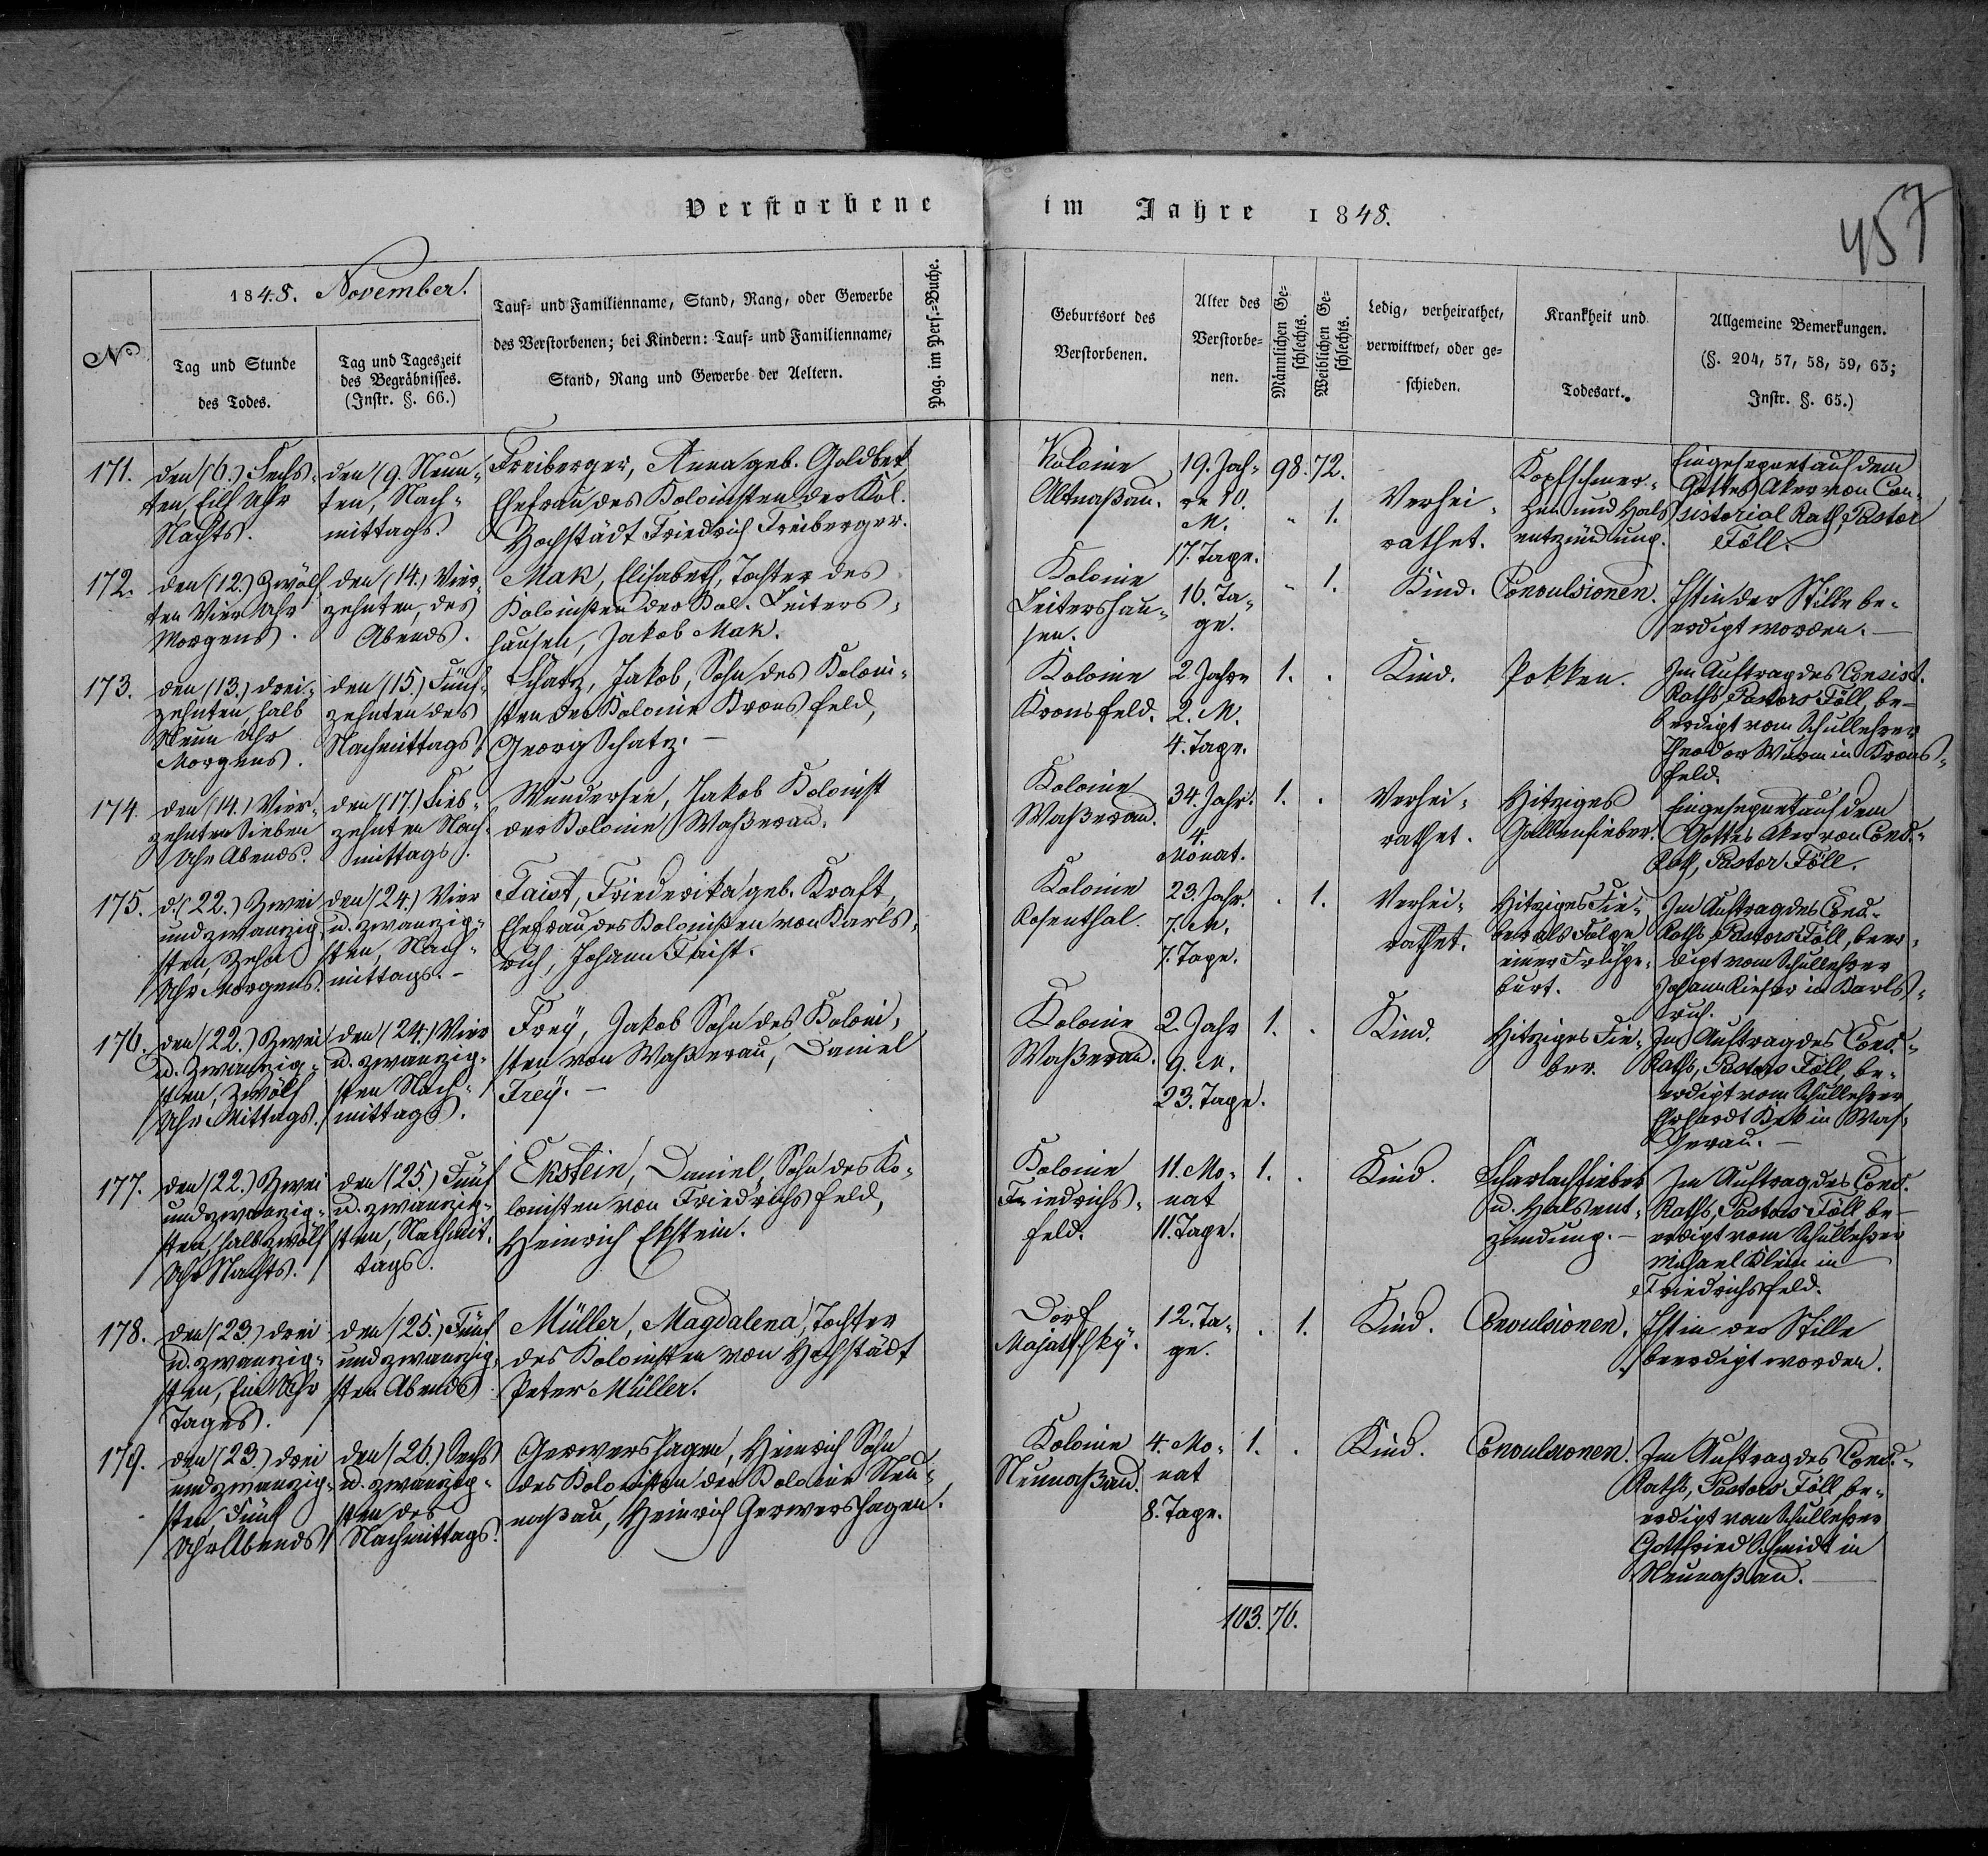 Verstorbene im Jahre 1848.
457
1848. November.
№
Tag und Stunde
des Todes.
Tag und Tageszeit
des Begräbnisses.
(Instr. §. 66.)
Tauf- und Familienname, Stand, Rang, oder Gewerbe
des Verstorbenen; bei Kindern: Tauf- und Familienname,
Stand, Rang und Gewerbe der Aeltern.
Pag. im Pers.-Buche.
Geburtsort des
Verstorbenen.
Alter des
Verstorbe-
nen.
Männlichen Ge-
schlechts.
Weiblichen Ge-
schlechts.
Ledig, verheirathet,
verwittwet, oder ge-
schieden.
Krankheit und
Todesart.
Allgemeine Bemerkungen.
(§. 204, 57, 58, 59, 63;
Instr. §. 65.)
171.
den (6.) Sechs-
ten, Eilf Uhr
Nachts.
den (9. Neun-
ten, Nach-
mittags.
Freiberger, Anna geb. Goldbek
Ehefrau des Kolonisten der Kol.
Hochstädt Friedrich Freiberger.
Kolonie
Altnaßau.
19. Jah-
re 10.
M.
17. Tage.
98. 72.
" 1.
Verhei-
rathet.
Kopfschmer-
zen und Hals
entzündung.
Eingesegnet auf dem
Gottes Aker von Con-
sistorial Rath, Pastor
Föll.
172.
den (12.) Zwölf
ten Vier Uhr
Morgens.
den (14.) Vier-
zehnten, des
Abends.
Mak, Elisabeth, Tochter des
Kolonisten der Kol. Leiters-
hausen, Jakob Mak.
Kolonie
Leitershau-
sen.
16. Ta-
ge.
" 1.
Kind.
Convulsionen.
Ist in der Stille be-
erdigt worden. —
173.
den (13.) Drei-
zehnten, halb
Neun Uhr
Morgens.
den (15.) Fünf-
zehnten des
Nachmittags
Schatz, Jakob, Sohn des Koloni-
sten der Kolonie Kronsfeld,
Georg Schatz. —
Kolonie
Kronsfeld.
2. Jahre
2. M.
4. Tage.
1. .
Kind.
Pokken.
Im Auftrag des Consist.
Raths, Pastors Föll, be-
erdigt vom Schullehrer
Theodor Wurm in Krons-
feld.
174.
den (14.) Vier-
zehnten Sieben
Uhr Abends.
den (17.) Sieb-
zehnten Nach-
mittags.
Wundersee, Jakob Kolonist
der Kolonie Waßerau.
Kolonie
Waßerau.
34. Jahr.
4.
Monat.
1. .
Verhei-
rathet.
Hitziges
Gallenfieber.
Eingesegnet auf dem
Gottes Aker von Cons.-
Rath, Pastor Föll.
175.
d. (22.) Zwei
und zwanzig-
sten, Zehn
Uhr Morgens.
den (24.) Vier
u. zwanzig-
sten, Nach-
mittags. —
Faist, Friederika geb. Kraft,
Ehefrau des Kolonisten von Karls-
ruh, Johann Faist.
Kolonie
Rosenthal.
23. Jahr.
7. M.
7. Tage.
. 1.
Verhei-
rathet.
Hitziges Fie-
ber als Folge
einer Frühge-
burt.
Im Auftrag des Cons.-
Raths, Pastors Föll, beer-
digt vom Schullehrer
Johann Kiefer in Karls-
ruh.
176.
den (22.) Zwei
u. Zwanzig-
sten, Zwölf
Uhr Mittags.
den (24.) Vier
u. zwanzig-
sten Nach-
mittags.
Frey, Jakob Sohn des Koloni-
sten von Waßerau, Daniel
Frey. —
Kolonie
Waßerau.
2. Jahr
9. M.
23. Tage.
1. .
Kind.
Hitziges Fie-
ber.
Im Auftrag des Cons.-
Raths, Pastors Föll, be-
erdigt vom Schullehrer
Ehrhardt Kek in Was-
serau. —
177.
den (22.) Zwei
und zwanzig-
sten, halb zwölf
Uhr Nachts.
den (25.) Fünf
u. zwanzig-
sten, Nachmit-
tags.
Ekstein, Daniel, Sohn des Ko-
lonisten von Friedrichsfeld,
Heinrich Ekstein.
Kolonie
Friedrichs-
feld.
11. Mo-
nat
11. Tage.
1. .
Kind.
Scharlachfieber
u. Halsent-
zündung. —
Im Auftrag des Cons.
Raths, Pastors Föll be-
erdigt vom Schullehrer
Michael Klein in
Friedrichsfeld.
178.
den (23.) drei
u. zwanzig-
sten, Ein Uhr
Tages.
den (25.) Fünf
und zwanzig-
sten Abends
Müller, Magdalena, Tochter
des Kolonisten von Hochstädt
Peter Müller.
Dorf
Majatschky.
12. Ta-
ge.
. 1.
Kind.
Convulsionen.
Ist in der Stille
beerdigt worden.
179.
den (23.) drei
und zwanzig-
sten, Fünf
Uhr Abends
den (26.) Sechs
u. zwanzig-
sten des
Nachmittags.
Gerwershagen, Heinrich Sohn
des Kolonisten der Kolonie Neu-
naßau, Heinrich Gerwershagen.
Kolonie
Neunaßau.
4. Mo-
nat
8. Tage.
1. .
Kind.
Convulsionen.
Im Auftrag des Cons.-
Raths, Pastors Föll, be-
erdigt vom Schullehrer
Gottfried Schmidt in
Neunaßau. —
103. 76.